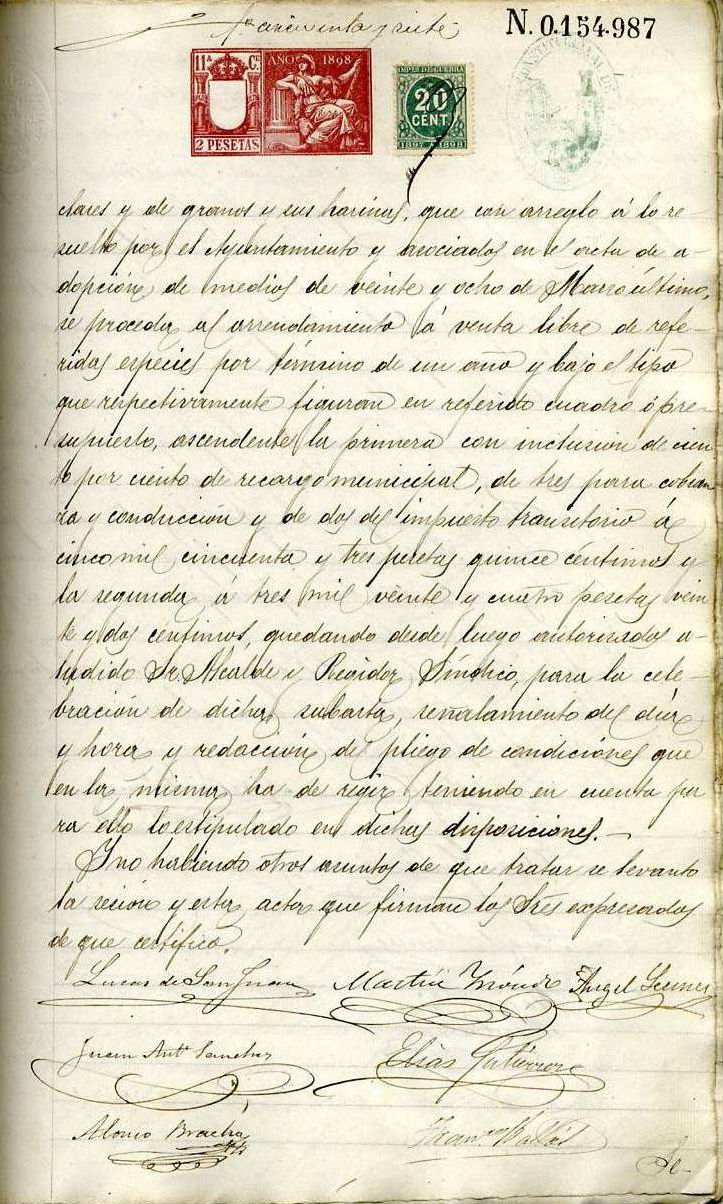 cincuenta y siete
N. 0.154.987
11ª Cᵉ AÑO 1898
2 PESETAS
IMPTO DE GUERRA
20
CENT
1897 A 1898
clares y de granos y sus harinas, que con arreglo á lo re-
suelto por el Ayuntamiento y asociados en el acta de a-
dopción de medios de veinte y ocho de Marzo último,
se proceda al arrendamiento á venta libre de refe-
ridas especies por término de un año y bajo el tipo
que respectivamente figuran en referido cuadro ó pre-
supuesto, ascendente la primera con inclusion de cien
to por ciento de recargo municipal, de tres para cobran
za y conducción y de dos del impuesto transitorio á
cinco mil cincuenta y tres pesetas quince céntimos y
la segunda á tres mil veinte y cuatro pesetas vein
te y dos centimos, quedando desde luego autorizados a-
ludido Sr. Alcalde y Regidor Síndico, para la cele-
bración de dicha subasta, señalamiento del dia
y hora y redacción del pliego de condiciones que
en la misma ha de regir teniendo en cuenta pa
ra ello lo estipulado en dichas disposiciones.-
Y no habiendo otros asuntos de que tratar se levantó
la sesión y esta acta que firman los Sres expresados
de que certifico.
Lucas de San Juan Martin Angel
Juan Antº Sanchez Elias Gutierrez
Alonso
Se-